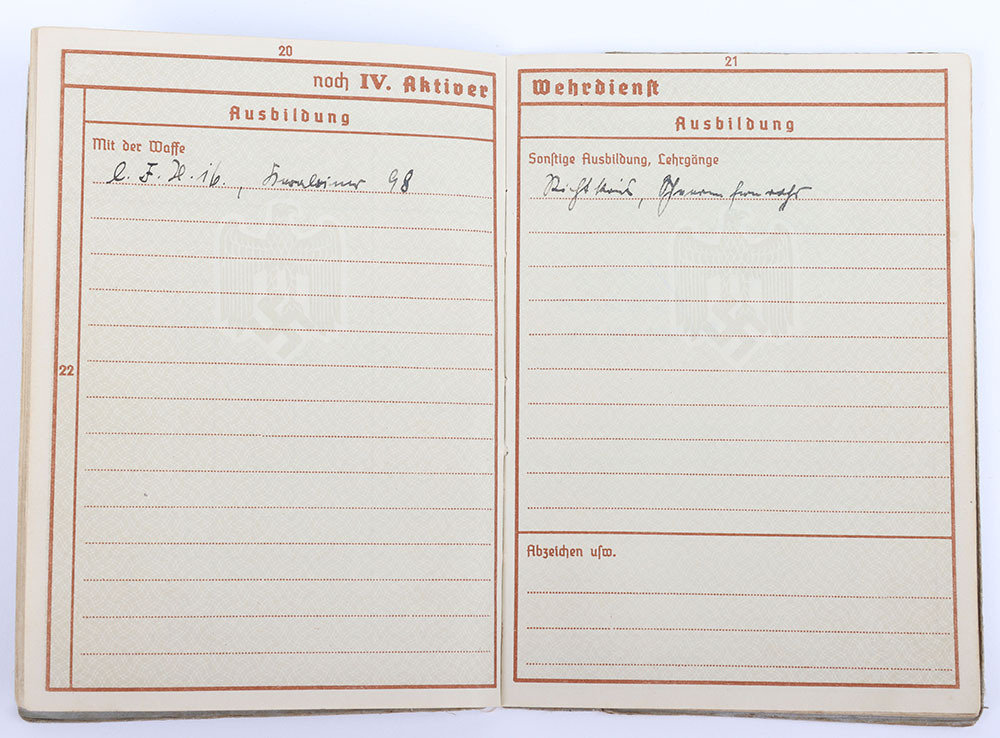 20
noch IV. Aktiver
Ausbildung
Mit der Waffe
l. F. H. 16., Karabiner 98
22
21
Wehrdienst
Ausbildung
Sonstige Ausbildung, Lehrgänge
Richtkreis, Scherenfernrohr
Abzeichen usw.